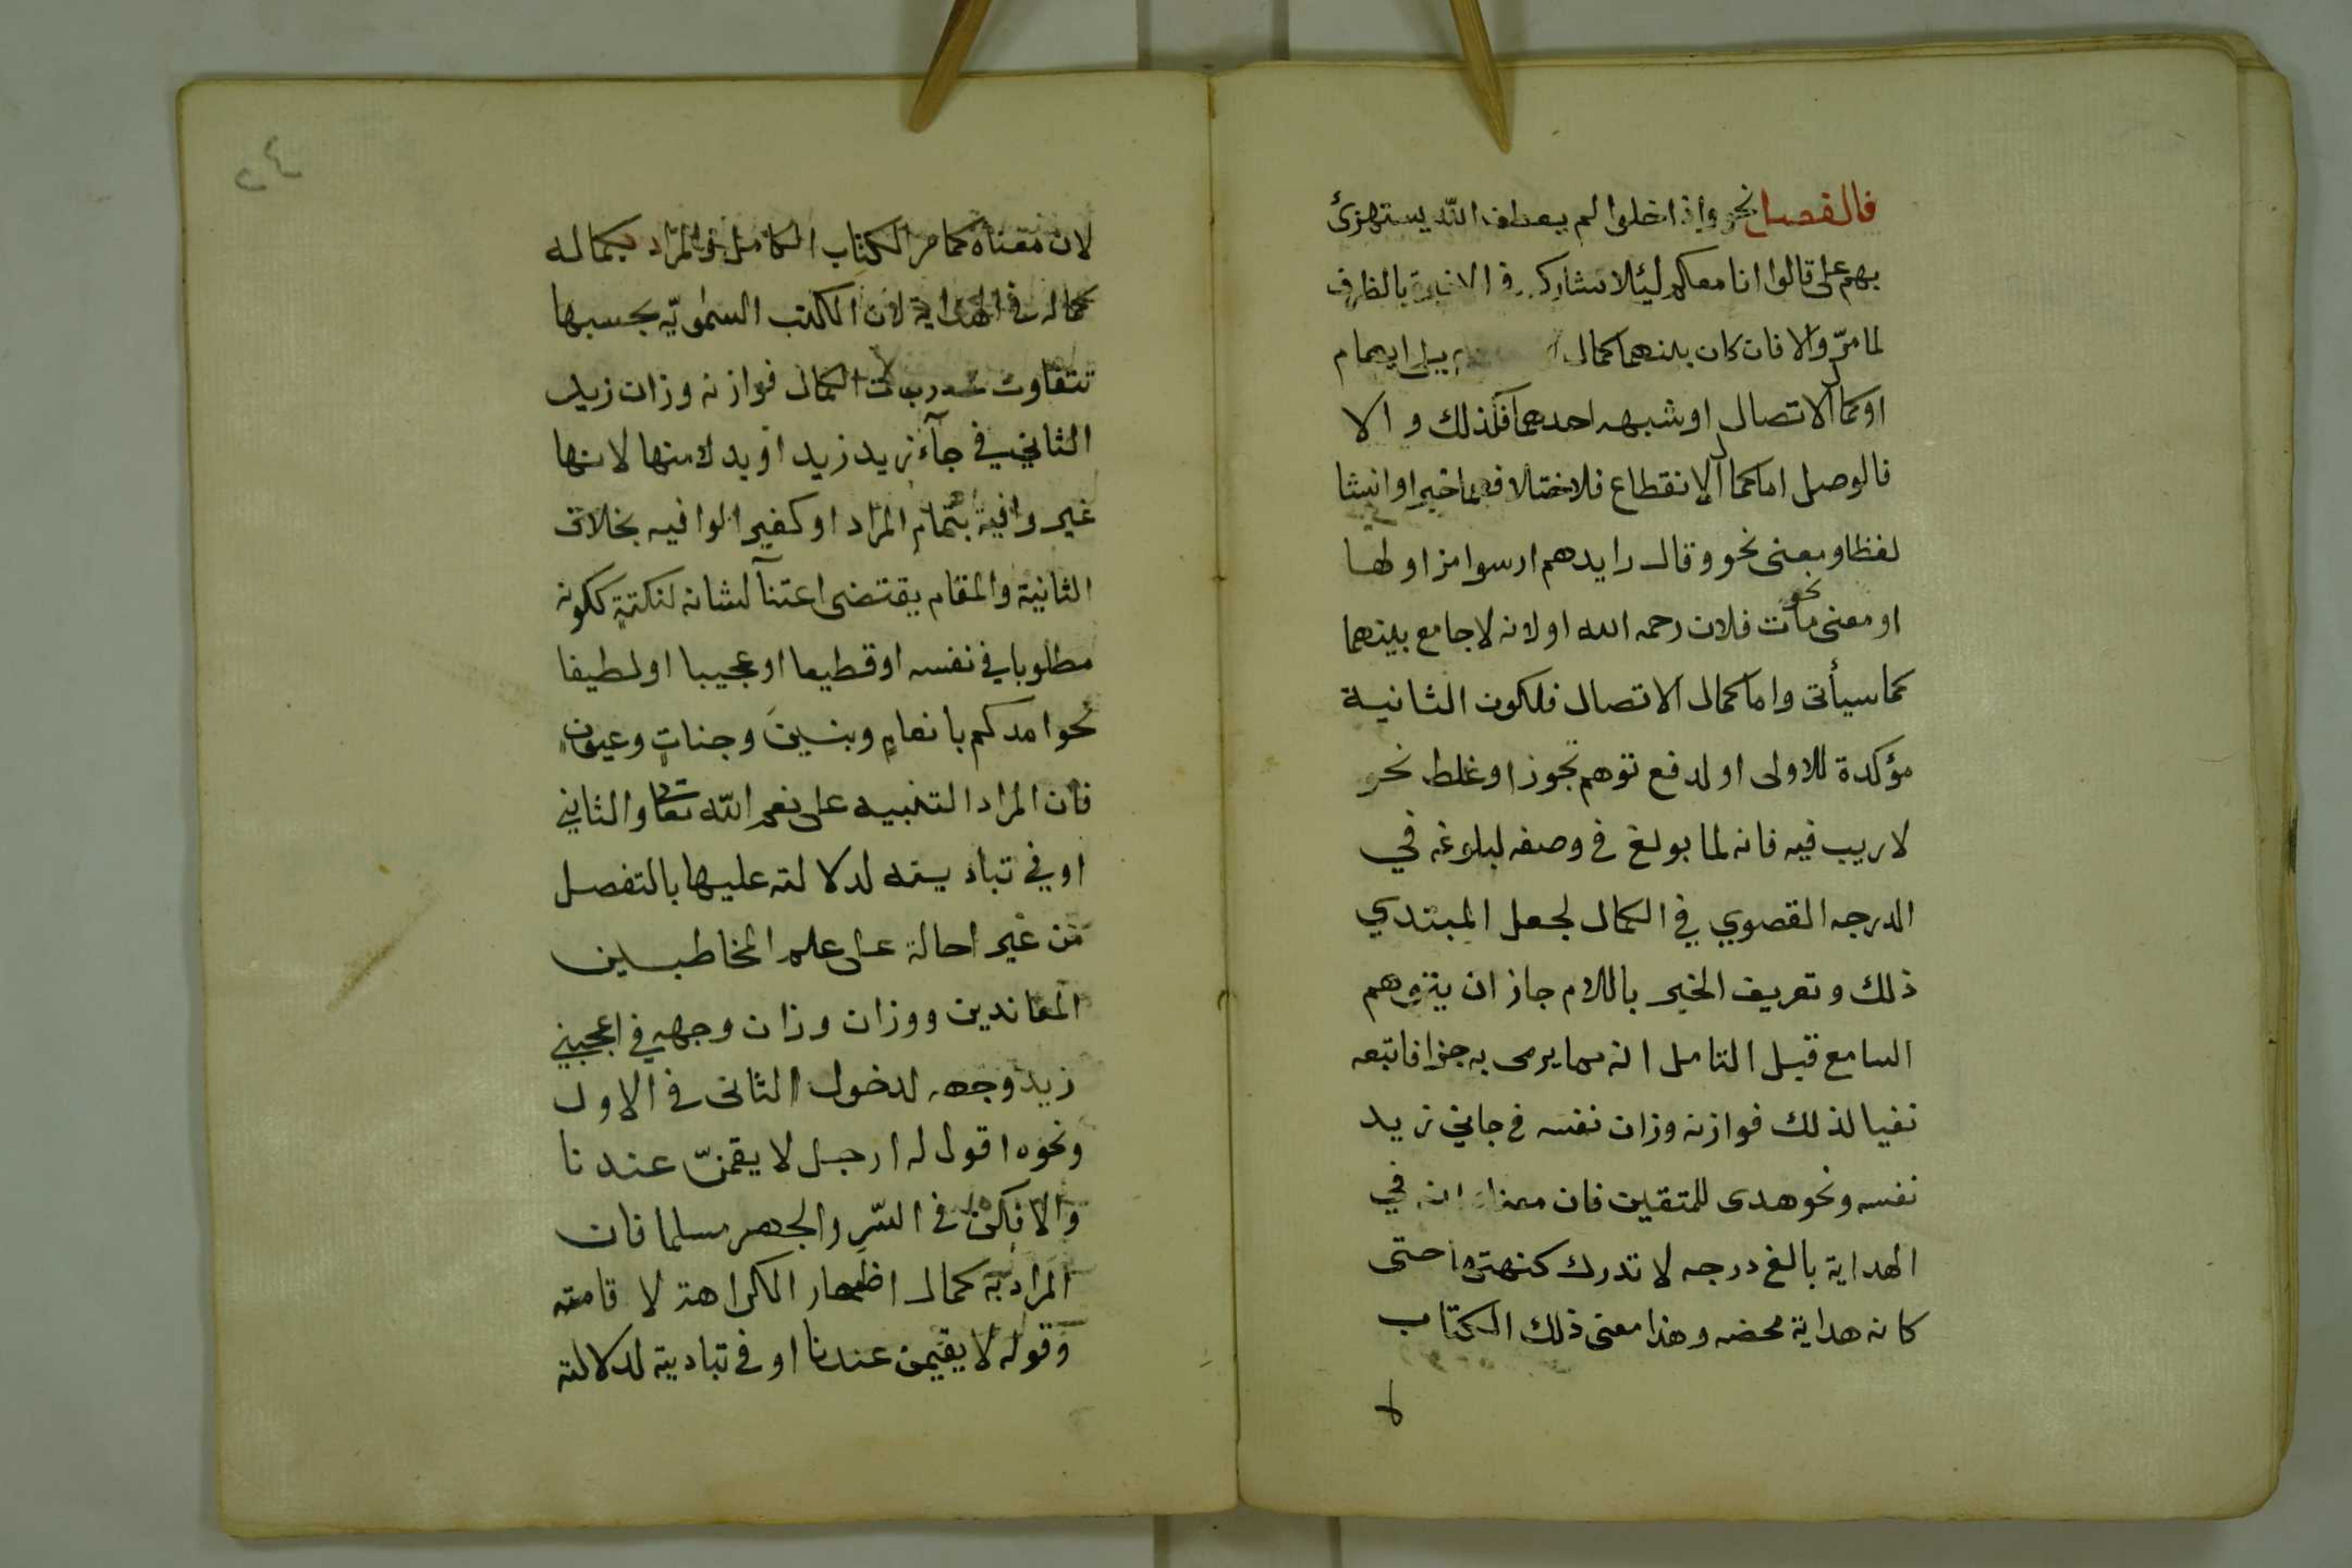 فالفصل نحو واذا خلوا لم يعطف الله يستهزئ
بهم على قالوا انا معكم لئلا يشاركه في الاختصاص بالظرف
لما مرّ والا فان كان بينهما كمال بلا ايهام
او كمال الاتصال او شبهه احدهما فكذلك والا
فالوصل اما كمال الانقطاع فلاختلافهما خبرا وانشا
لفظا ومعنى نحو وقال رايدهم ارسوا نزاولها
او معنى نحو مات فلان رحمه الله او لانه لا جامع بينهما
كما سيأتى واما كمال الاتصال فلكون الثانية
مؤكدة للاولى او لدفع توهم تجوز او غلط نحو
لا ريب فيه فانه لما بولغ في وصفه لبلوغه في
الدرجه القصوي في الكمال لجعل المبتدي
ذلك وتعريف الخبر باللام جاز ان يتوهم
السامع قبل التامل انه مما يرمى به جزافا فاتبعه
نفيا لذلك فوازنه وزان نفسه في جاني زيد
نفسه ونحو هدى للمتقين فان معناه انه في
الهداية بالغ درجه لا تدرك كنهها حتى
كانه هداية محضه وهذا معنى ذلك الكتاب
لا
٢٤
لان معناه كما مر الكتاب الكامل والمراد بكماله
كماله في الهداية لان الكتب السموٰيّه بحسبها
تتفاوت في درجات الكمال فوازنه وزان زيد
الثاني في جآء زيد زيد او بدلا منها لانها
غير وافية بتمام المراد او كغير الوافيه بخلاف
الثانية والمقام يقتضى اعتنآ لشانه لنكتة ككونه
مطلوبا في نفسه او قطيعا او عجيبا او لطيفا
نحو امدكم بانعامٍ وبنينَ وجناتٍ وعيونٍ
فان المراد التنبيه على نعم الله تعا والثاني
اوفي تباديته لدلالته عليها بالتفصل
من غير احالة على علم المخاطبين
المعاندين ووزان وزان وجهه في اعجبني
زيد وجهه لدخول الثانى في الاول
ونحوه اقول له ارحل لا يقمنّ عندنا
والا فكن في السّرِ والجهر مسلما فان
المراد به كمال اظهار الكراهة لاقامته
وقوله لا يقيمن عندنا اوفى تبادية لدلالته